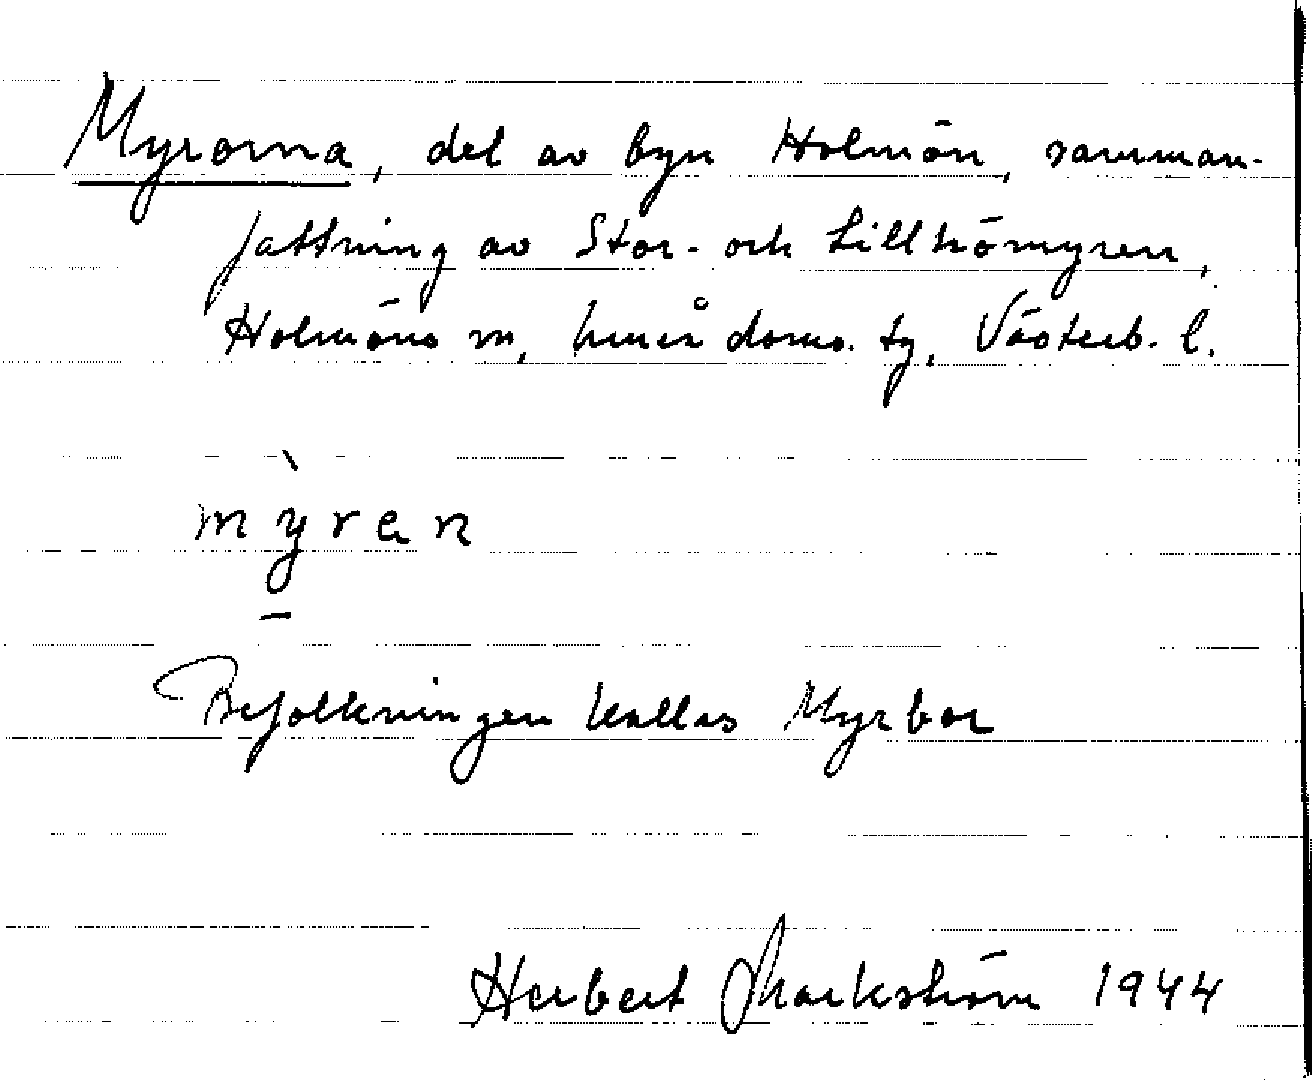 Myrorna, del av byn Holmön, samman-
fattning av Stor- och Lillhömyren,
Holmöns sn, Umeå doms. tg, Västerb. l.
mỳran
Befolkningen kallas Myrbor
Herbert Markström 1944